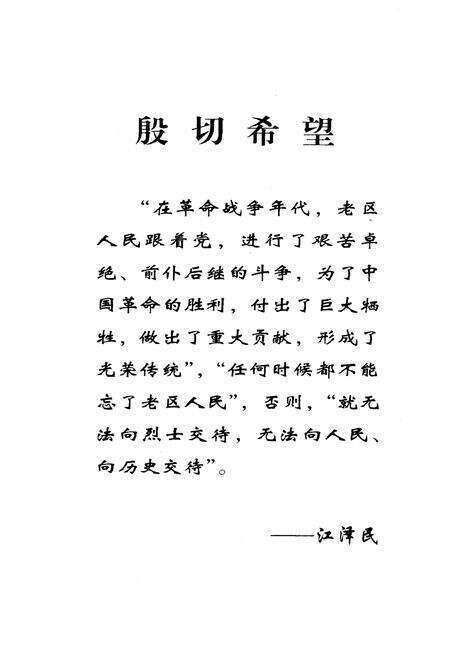 殷切希望
“在革命战争年代，老区
人民跟着党，进行了艰苦卓
绝、前仆后继的斗争，为了中
国革命的胜利，付出了巨大牺
牲，做出了重大贡献，形成了
光荣传统”，“任何时候都不能
忘了老区人民”，否则，“就无
法向烈士交待，无法向人民、
向历史交待”。
——江泽民